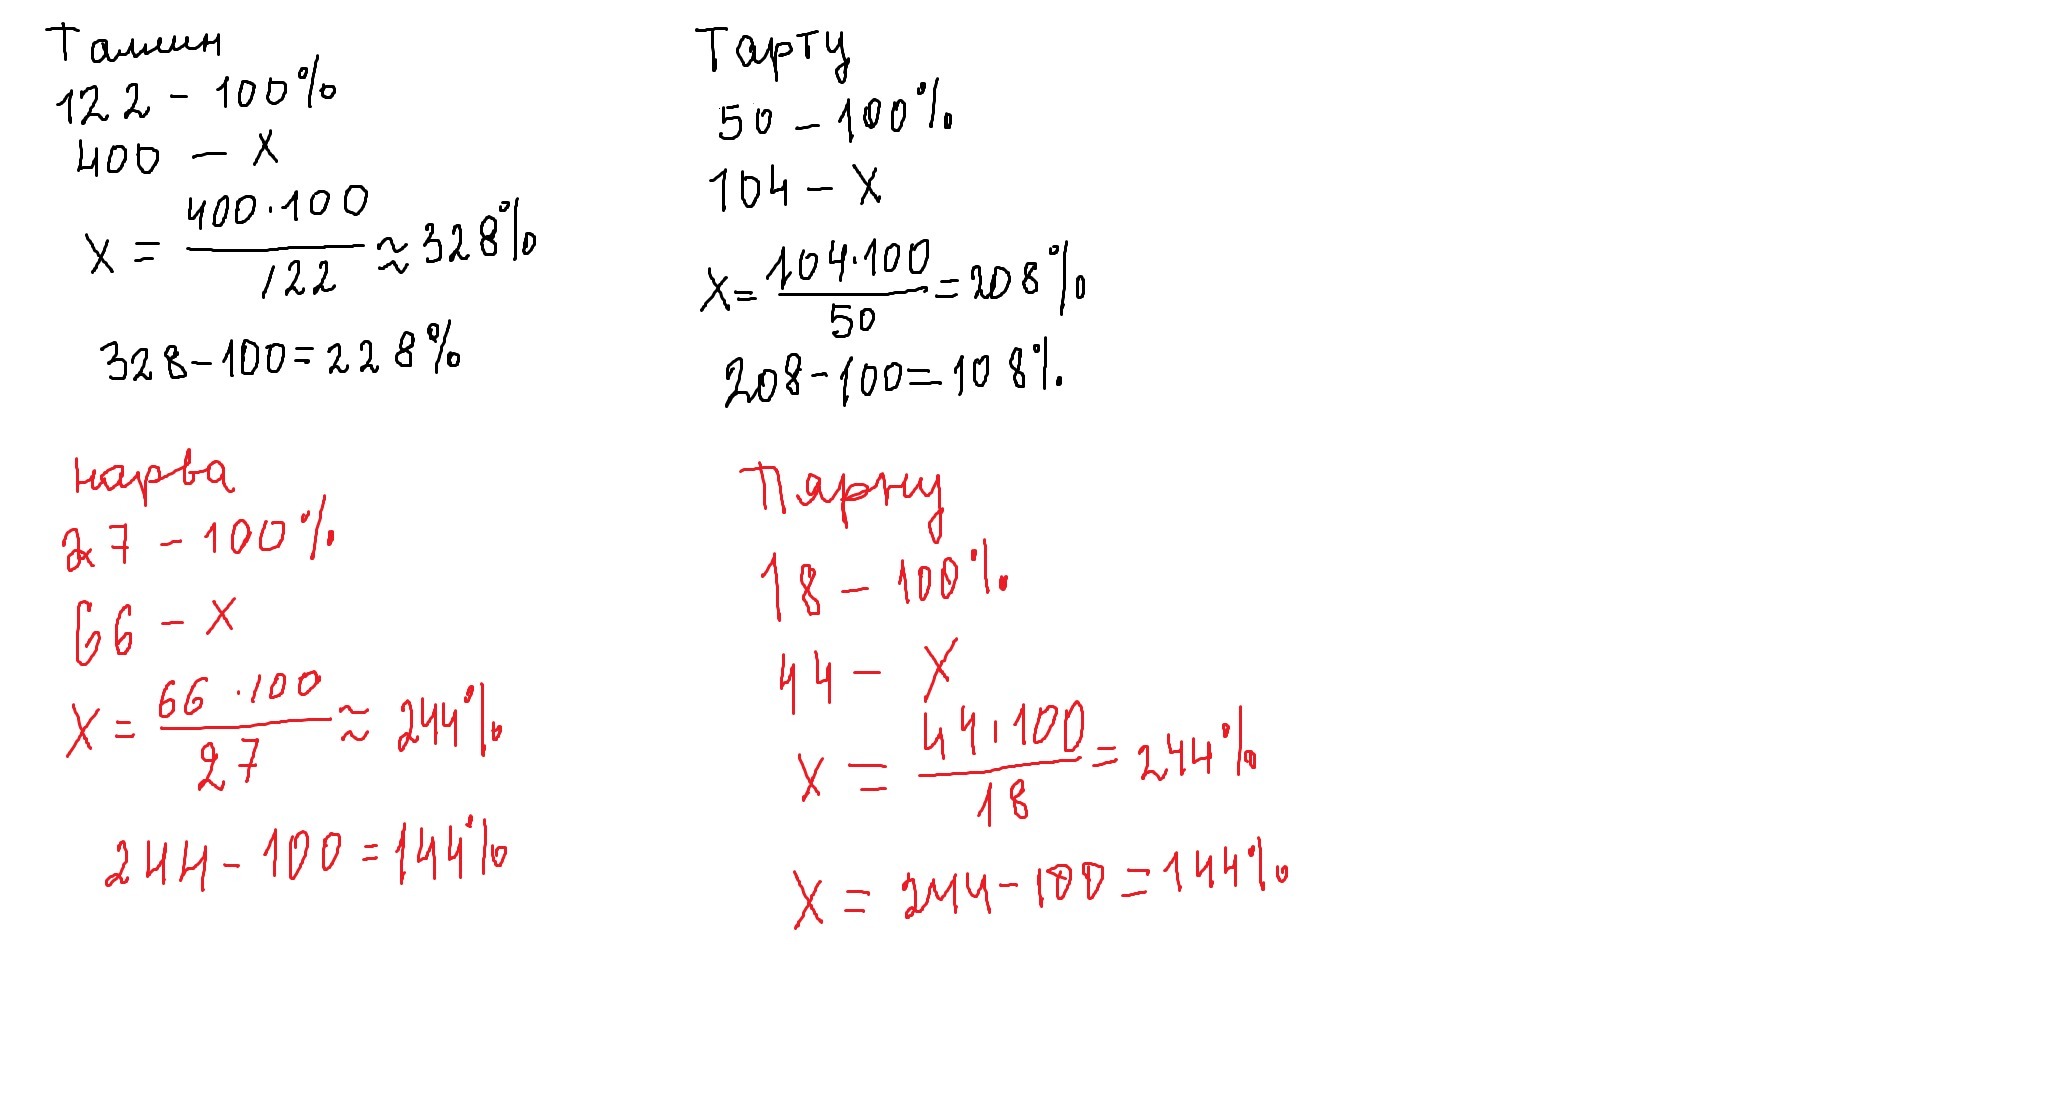 Таллин
122 - 100%
400 - X
X = 400·100 / 122 ≈ 328%
328-100=228%
Тарту
50 - 100%
104 - X
X = 104·100 / 50 = 208%
208-100=108%
нарва
27 - 100%
66 - X
X = 66·100 / 27 ≈ 244%
244 - 100 = 144%
Пярну
18 - 100%
44 - X
X = 44·100 / 18 = 244%
X = 244-100 = 144%